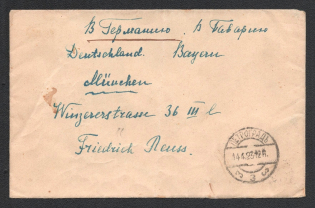 В Германию. в Баварию
Deutschland. Bayern
München
Winzererstrasse 36 III l
Friedrich Reuss.
ПЕТРОГРАД
14.4.23